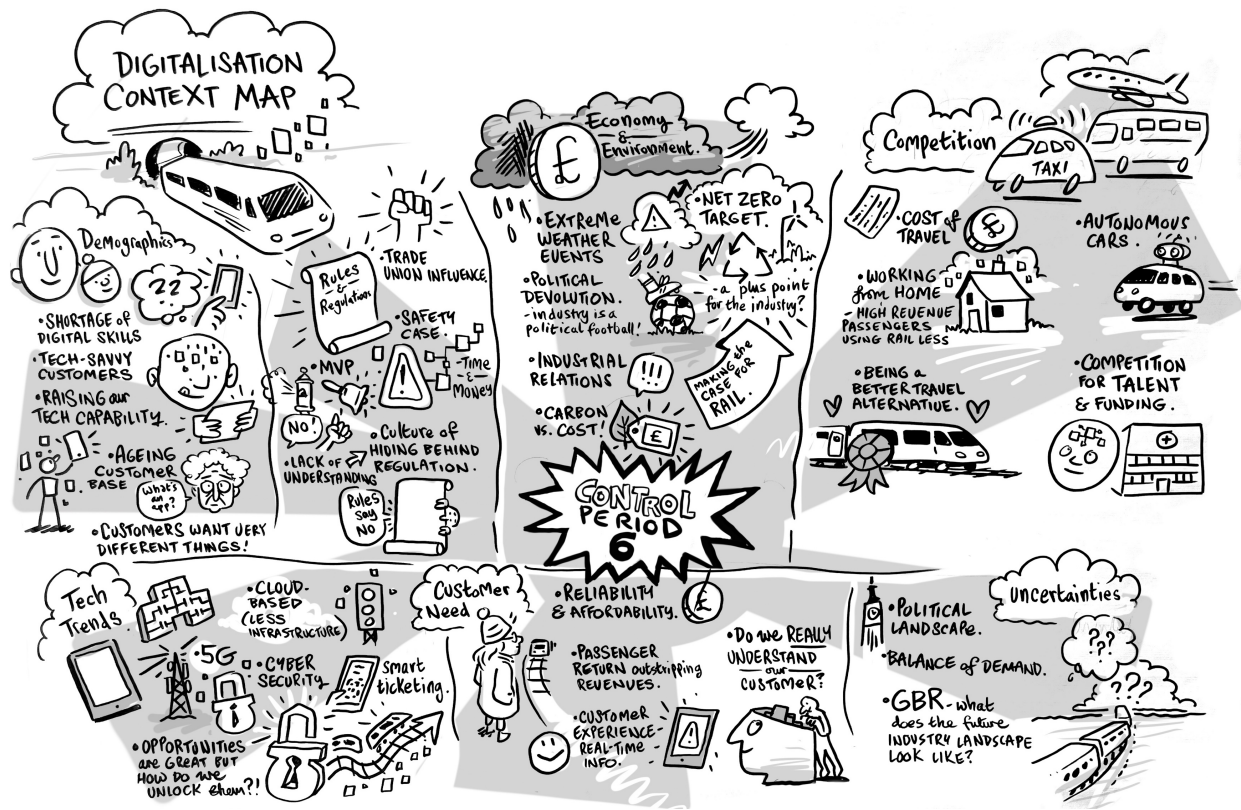 DIGITALISATION
CONTEXT MAP
Demographics
??
• SHORTAGE of
DIGITAL SKILLS
• TECH-SAVVY
CUSTOMERS
• RAISING our
TECH CAPABILITY.
• AGEING
CUSTOMER
BASE
What's
an
app?
• CUSTOMERS WANT VERY
DIFFERENT THINGS!
Rules
&
Regulations
• TRADE
UNION INFLUENCE.
• SAFETY
CASE.
- Time
&
Money
• MVP
NO!
• LACK of
UNDERSTANDING
• Culture of
HIDING BEHIND
REGULATION.
Rules
say
NO
Economy
&
Environment.
£
• EXTREME
WEATHER
EVENTS
• POLITICAL
DEVOLUTION.
- industry is a
political football!
• INDUSTRIAL
RELATIONS
!!!
• CARBON
vs. COST!
£
• NET ZERO
TARGET.
- a plus point
for the industry?
MAKING the
CASE FOR
RAIL.
CONTROL
PERIOD
6
Competition
TAXI
• COST of
TRAVEL
£
• AUTONOMOUS
CARS.
• WORKING
from HOME
- HIGH REVENUE
PASSENGERS
USING RAIL LESS
• BEING a
BETTER TRAVEL
ALTERNATIVE.
• COMPETITION
FOR TALENT
& FUNDING.
Tech
Trends
• CLOUD-
BASED
(LESS
INFRASTRUCTURE)
• 5G
• CYBER
SECURITY
smart
ticketing.
• OPPORTUNITIES
are GREAT BUT
HOW DO we
UNLOCK them?!
Customer
Need
• RELIABILITY
& AFFORDABILITY.
£
• PASSENGER
RETURN outstripping
REVENUES.
• CUSTOMER
EXPERIENCE-
REAL-TIME
INFO.
• Do we REALLY
UNDERSTAND
our
CUSTOMER?
Uncertainties
• POLITICAL
LANDSCAPE.
• BALANCE of DEMAND.
• GBR - what
does the future
INDUSTRY LANDSCAPE
LOOK LIKE?
??
???